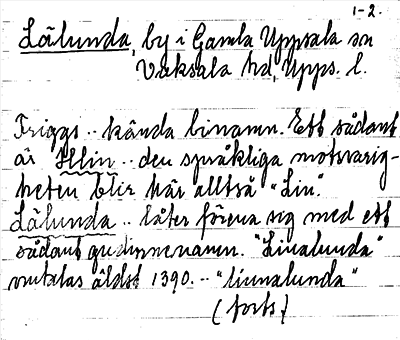 1-2.
Lälunda, by i Gamla Uppsala sn
Vaksala hd, Upps. l.
Friggs .. kända binamn. Ett sådant
är Hlin .. den språkliga motsvarig-
heten blir här alltså "Lin".
Lälunda .. låter förena sig med ett
sådant gudinnenamn. "Linalunda"
omtalas äldst 1390. .. "linnalunda"
(forts)